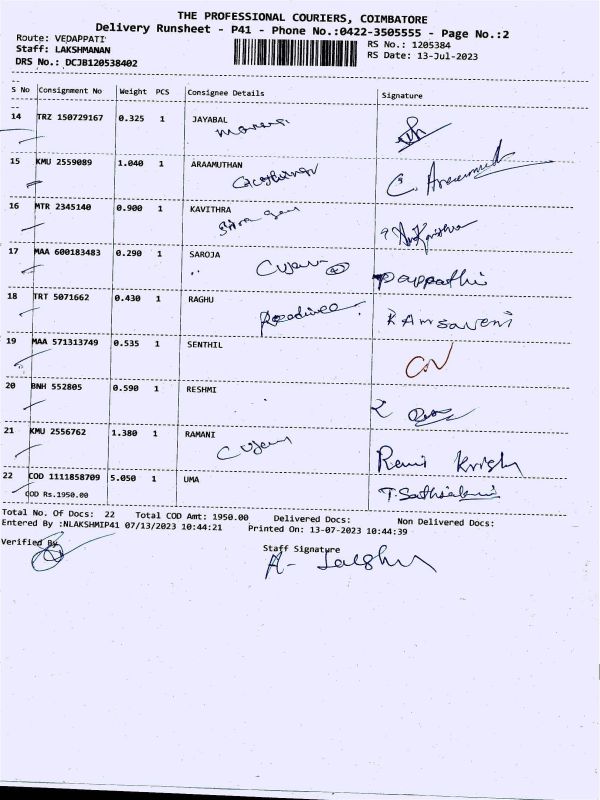 THE PROFESSIONAL COURIERS, COIMBATORE
Delivery Runsheet - P41 - Phone No.:0422-3505555 - Page No.:2
Route: VEDAPPATI
RS No.: 1205384
Staff: LAKSHMANAN
RS Date: 13-Jul-2023
DRS No.: DCJB120538402
S No Consignment No Weight PCS Consignee Details Signature
14 TRZ 150729167 0.325 1 JAYABAL
15 KMU 2559089 1.040 1 ARAAMUTHAN
16 MTR 2345140 0.900 1 KAVITHRA
17 MAA 600183483 0.290 1 SAROJA
Pappathi
18 TRT 5071662 0.430 1 RAGHU
RAMSAVENI
19 MAA 571313749 0.535 1 SENTHIL
20 BNH 552805 0.590 1 RESHMI
21 KMU 2556762 1.380 1 RAMANI
22 COD 1111858709 5.050 1 UMA
COD Rs.1950.00
Total No. Of Docs: 22 Total COD Amt: 1950.00 Delivered Docs: Non Delivered Docs:
Entered By :NLAKSHMIP41 07/13/2023 10:44:21 Printed On: 13-07-2023 10:44:39
Verified By
Staff Signature